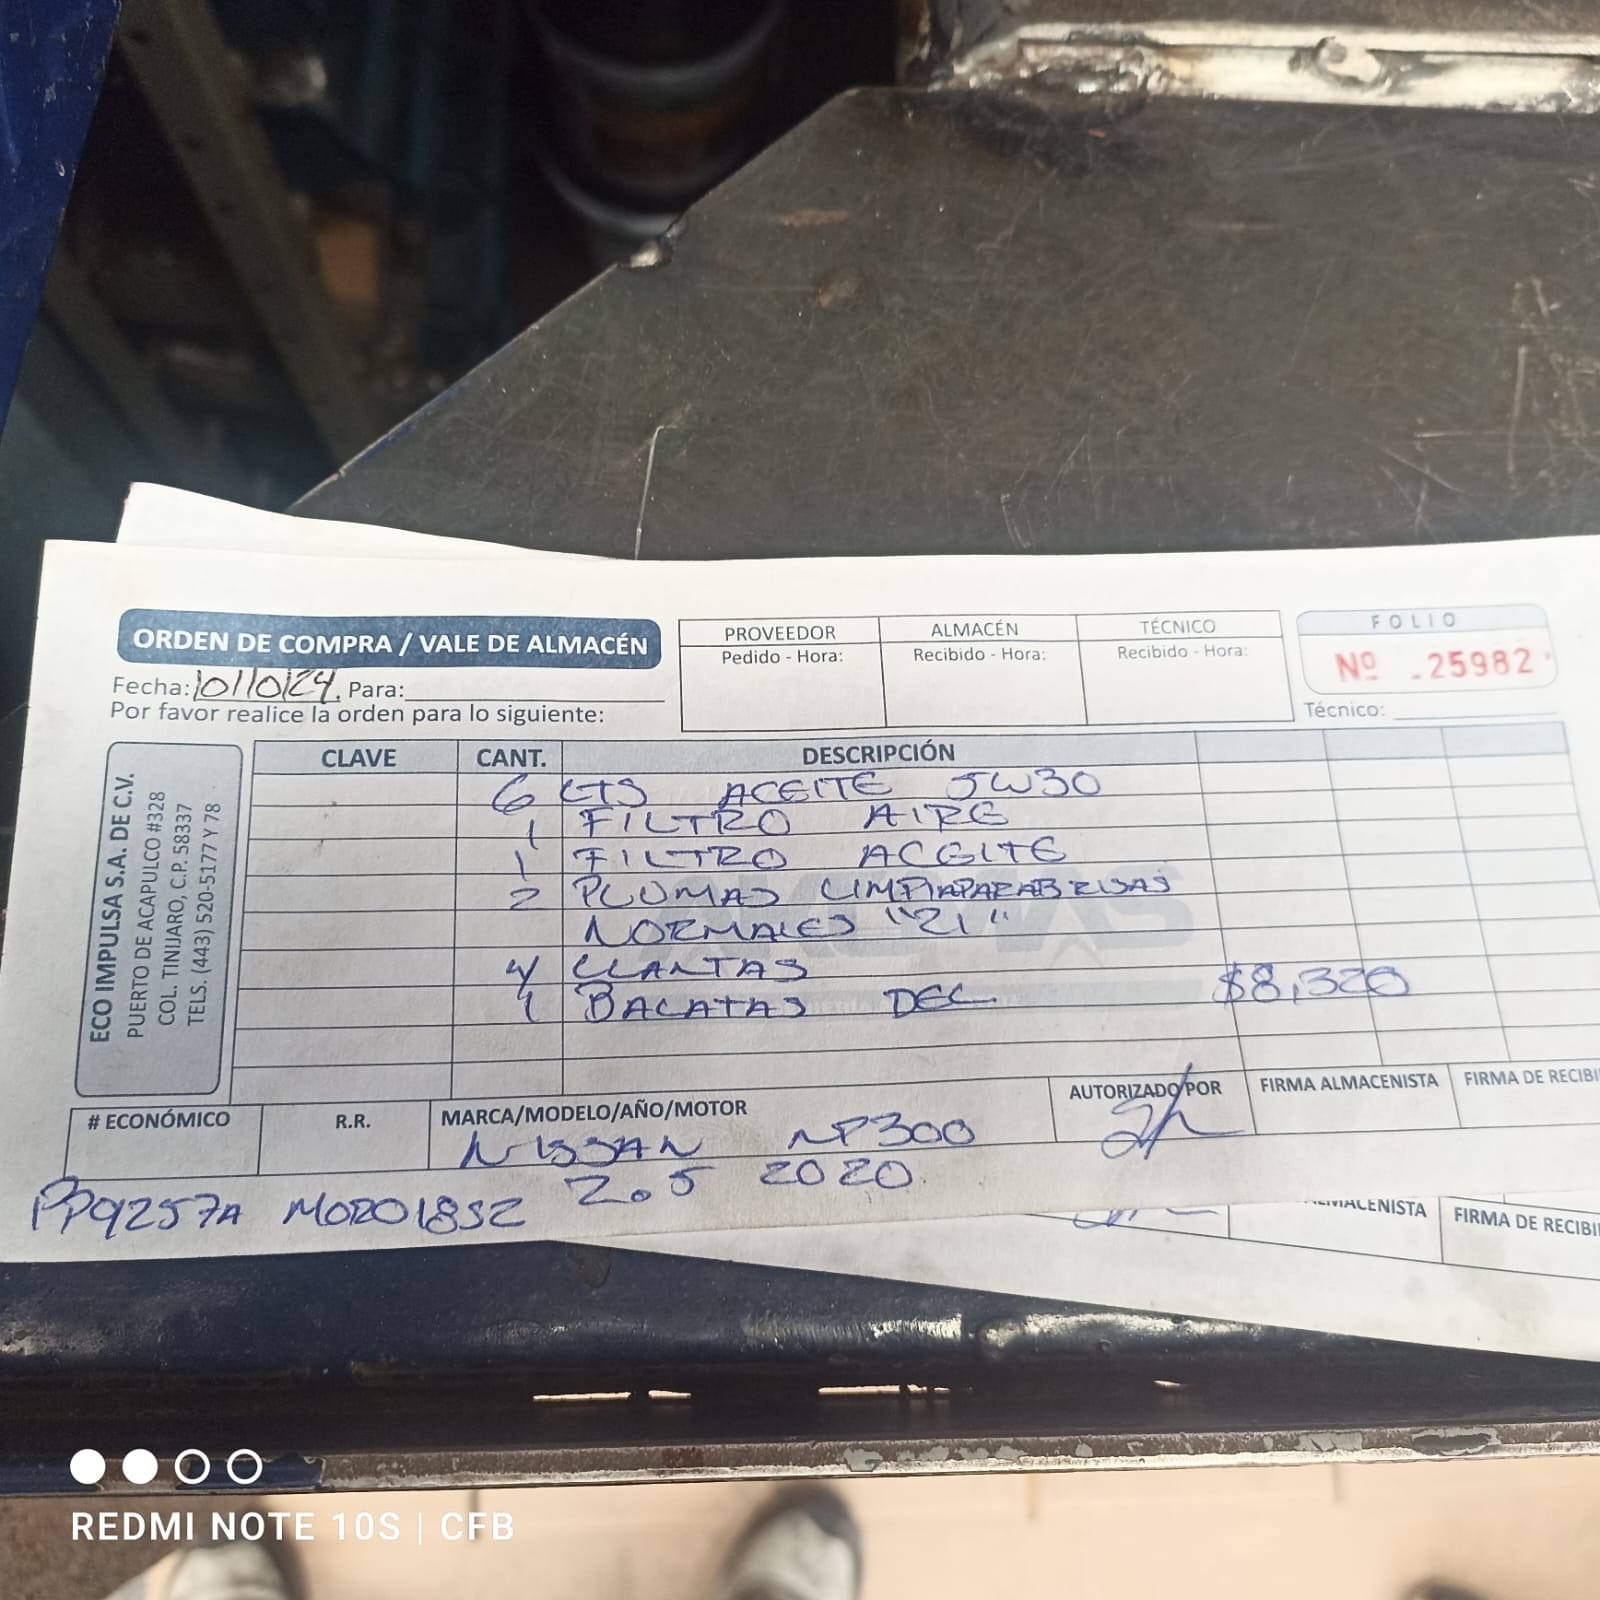 ORDEN DE COMPRA / VALE DE ALMACÉN
Fecha: 10/10/24 Para:
Por favor realice la orden para lo siguiente:
PROVEEDOR ALMACÉN TÉCNICO
Pedido - Hora: Recibido - Hora: Recibido - Hora:
FOLIO
Nº .25982
Técnico:
ECO IMPULSA S.A. DE C.V.
PUERTO DE ACAPULCO #328
COL. TINIJARO, C.P. 58337
TELS. (443) 520-5177 Y 78
CLAVE CANT. DESCRIPCIÓN
6 LTS ACEITE 5W30
1 FILTRO AIRE
1 FILTRO ACEITE
2 PLUMAS LIMPIAPARABRISAS
NORMALES "21"
4 LLANTAS $8,320
1 BALATAS DEL.
# ECONÓMICO R.R. MARCA/MODELO/AÑO/MOTOR AUTORIZADO POR FIRMA ALMACENISTA FIRMA DE RECIBI
NISSAN NP300
2.5 2020
PP9257A MORO1852
ALMACENISTA FIRMA DE RECIBI
REDMI NOTE 10S | CFB